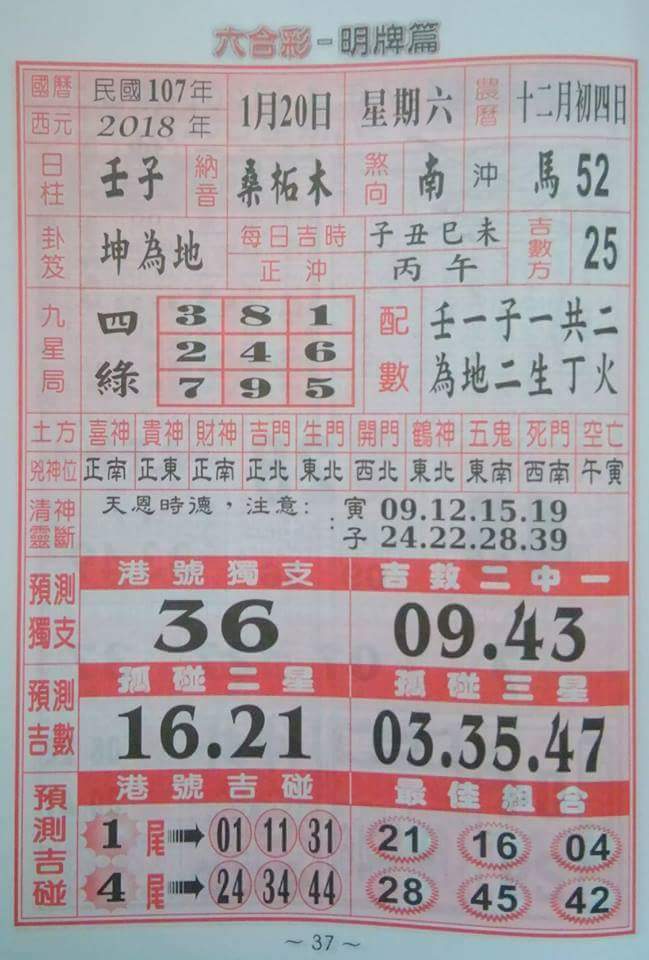 六合彩-明牌篇
國曆 民國107年 1月20日 星期六 農曆 十二月初四日
西元 2018年
日柱 壬子 納音 桑柘木 煞向 南 沖 馬52
卦笈 坤為地 每日吉時 子丑巳未 吉數方 25
正沖 丙午
九星局 四綠 3 8 1 配數 壬一子一共二
2 4 6
7 9 5 為地二生丁火
土方 喜神 貴神 財神 吉門 生門 開門 鶴神 五鬼 死門 空亡
兇神位 正南 正東 正南 正北 東北 西北 東北 正南 西南 午寅
清神靈斷 天恩時德，注意: 寅 09.12.15.19
: 子 24.22.28.39
預測獨支 港號獨支 吉数二中一
36 09.43
預測吉數 孤碰二星 孤碰三星
16.21 03.35.47
預測吉碰 港號吉碰 最佳組合
1尾 01 11 31 21 16 04
4尾 24 34 44 28 45 42
~37~